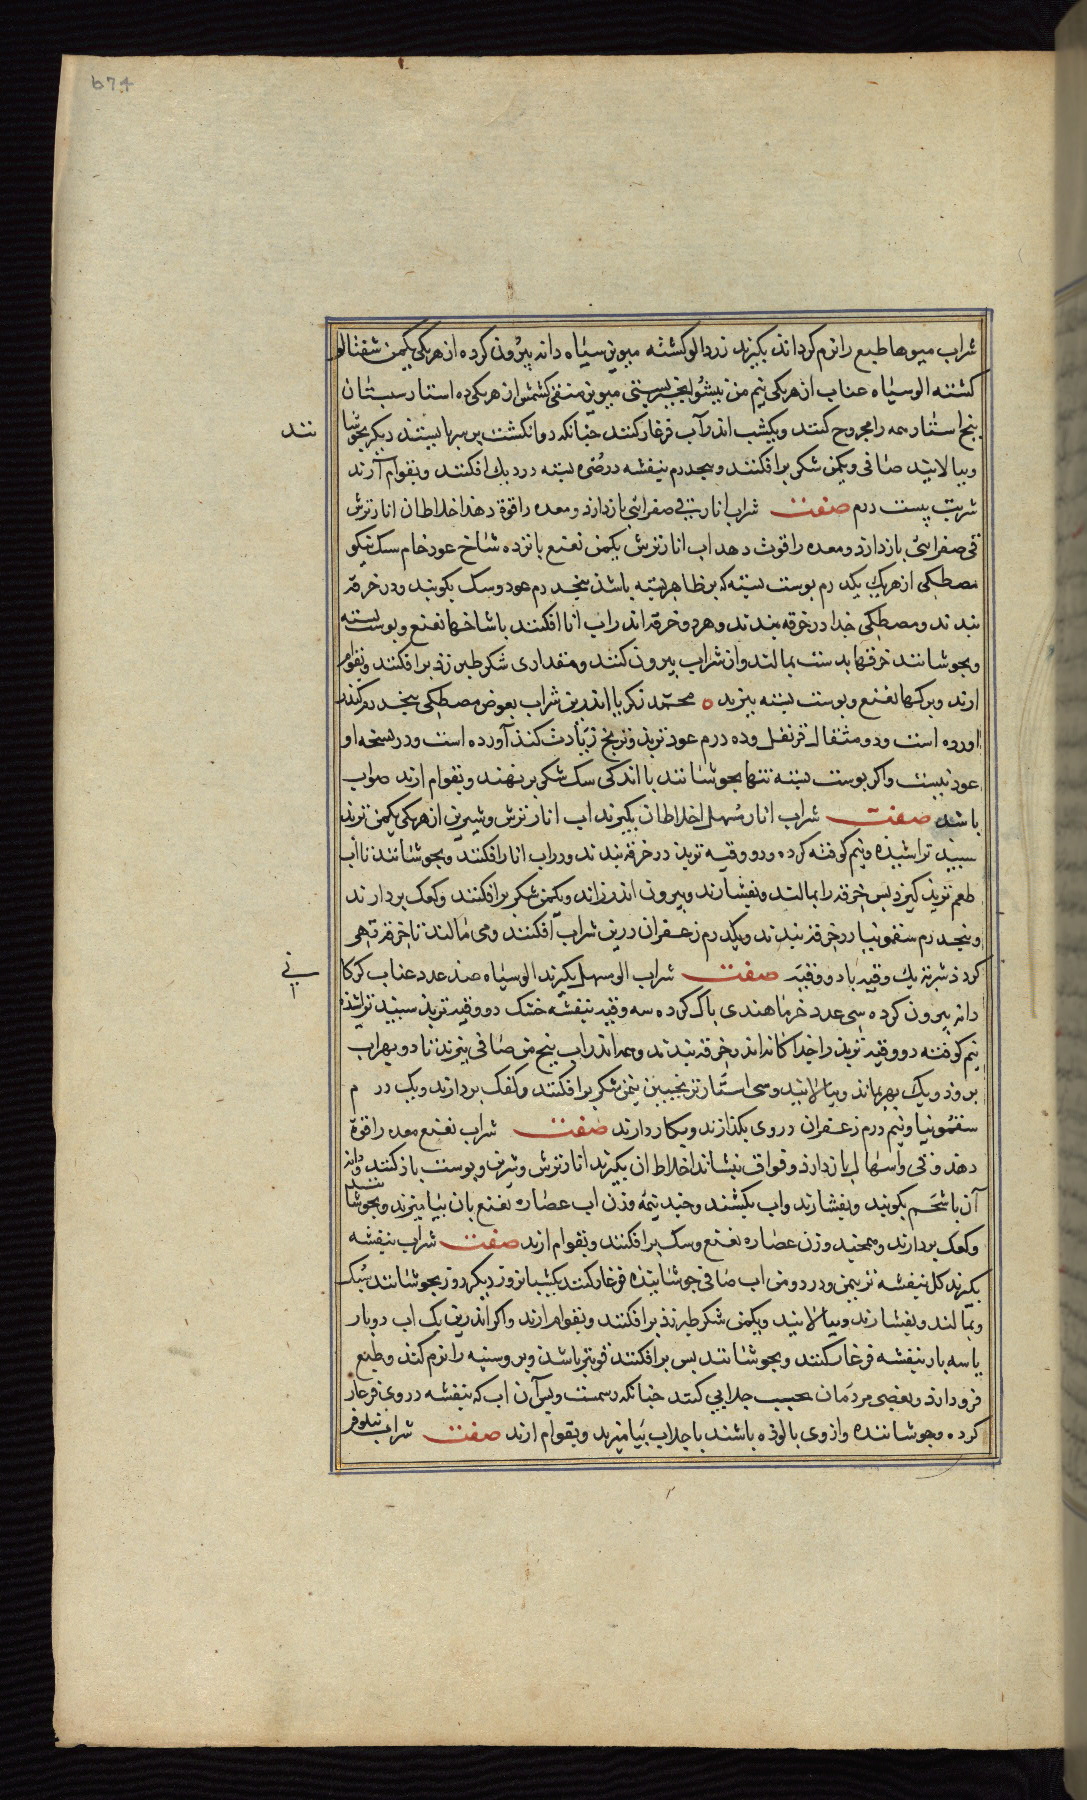 674
شراب میوها طبع را نرم کرداند بکیرند زردالو کشته میویز سیاه دانه بیرون کرده از هریکی یکمن شفتالو
کشته الو سیاه عناب از هریکی نیم من میویز منقی کشمش از هریکی ده استار سبستان
پنج استار همه را مجروح کنند ویکشب اندر آب فرغار کنند چنانکه دو انکشت بر سر ایستد دیکر بجوشا
نند
وبپالایند صافی ویکمن شکر برافکنند وپنجدرم بنفشه در بسته در دیك افکنند وبقوام آرند
شربت بیست درم صفت شراب انار قی صفرائی بازدارد ومعده را قوة دهد اخلاط آن انار ترش
قی صفرائی بازدارد ومعده را قوت دهد اب انار ترش یکمن نعنع پانزده شاخ عود خام سک نیکو
مصطکی از هریك یکدرم پوست پسته که بر ظاهر پسته باشد پنجدرم عود وسک بکوبند ودر خرقه
بندند ومصطکی جدا در خرقه بندند وهر دو خرقه اندر اب انار افکنند با شاخها نعنع وپوست پسته
وبجوشانند خرقها بدست بمالند واز شراب بیرون کنند ومقداری شکر طبرزد برافکنند وبقوام
ارند وبرکها نعنع وپوست پسته بپزند ه محمد زکریا اندرین شراب بعوض مصطکی پنجدرم کندر
اورده است ودو مثقال قرنفل وده درم عود زیادت کند آورده است ودر نسخه او
عود نیست واکر پوست پسته تنها بجوشانند با اندکی سک شکر برنهند وبقوام ارند صواب
باشد صفت شراب انار مسهل اخلاط آن بکیرند اب انار ترش وشیرین از هریکی یکمن تربد
سبید تراشیده ونیم کوفته کرده ودو وقیه تربد در خرقه بندند ودر اب انار افکنند وبجوشانند تا اب
طعم تربد کیرد پس خرقه را بمالند وبفشارند وبیرون اندازند ویکمن شکر برافکنند وکفک بردارند
وپنجدرم سقمونیا در خرقه بندند ویکدرم زعفران درین شراب افکنند ومی مالند تا خرقه تهی
کردد شربت یك وقیه با دو وقیه صفت شراب الو مسهل بکیرند الو سیاه صد عدد عناب کرکا
نی
دانه بیرون کرده سی عدد خرما هندی پاک کرده سه وقیه بنفشه خشک دو وقیه تربد سبید تراشیده
نیم کوفته دو وقیه تربد را جداکانه اندر خرقه بندند وهمه اندر اب پنج من صافی بپزند تا دو بهر اب
برود ویک بهر بماند وبپالایند وسی استار ترنجبین نیمن شکر برافکنند وکفک بردارند ویک درم
سقمونیا ونیم درم زعفران در وی بکدازند وبکار دارند صفت شراب نعنع معده را قوة
دهد وقی واسهال بازدارد وفواق بنشاند اخلاط آن بکیرند انار ترش وشیرین وپوست باز کنند ودانه
آن با شحم بکوبند وبفشارند واب بکشند وچند نیمه وزن اب عصاره نعنع بان بیامیزند وبجوشانند
وکفک بردارند وهمچند وزن عصاره نعنع وسک برافکنند وبقوام ارند صفت شراب بنفشه
بکیرند کل بنفشه تر نیمن ودر دو من اب صافی جوشانیده فرغار کنند یکشبانروز دیکر روز بجوشانند سبک
وبمالند وبفشارند وبپالایند ویکمن شکر طبرزد برافکنند وبقوام ارند واکر اندرین یک اب دو بار
یا سه بار بنفشه فرغار کنند وبجوشانند پس برافکنند قویتر باشد وبر وسینه را نرم کند وطبع
فرود ارد وبعضی مردمان جلابی کنند چنانکه رسمست وپس آن اب که بنفشه در وی فرغار
کرده وجوشانیده واز وی پالوده باشند با جلاب بیامیزند وبقوام ارند صفت شراب نیلوفر